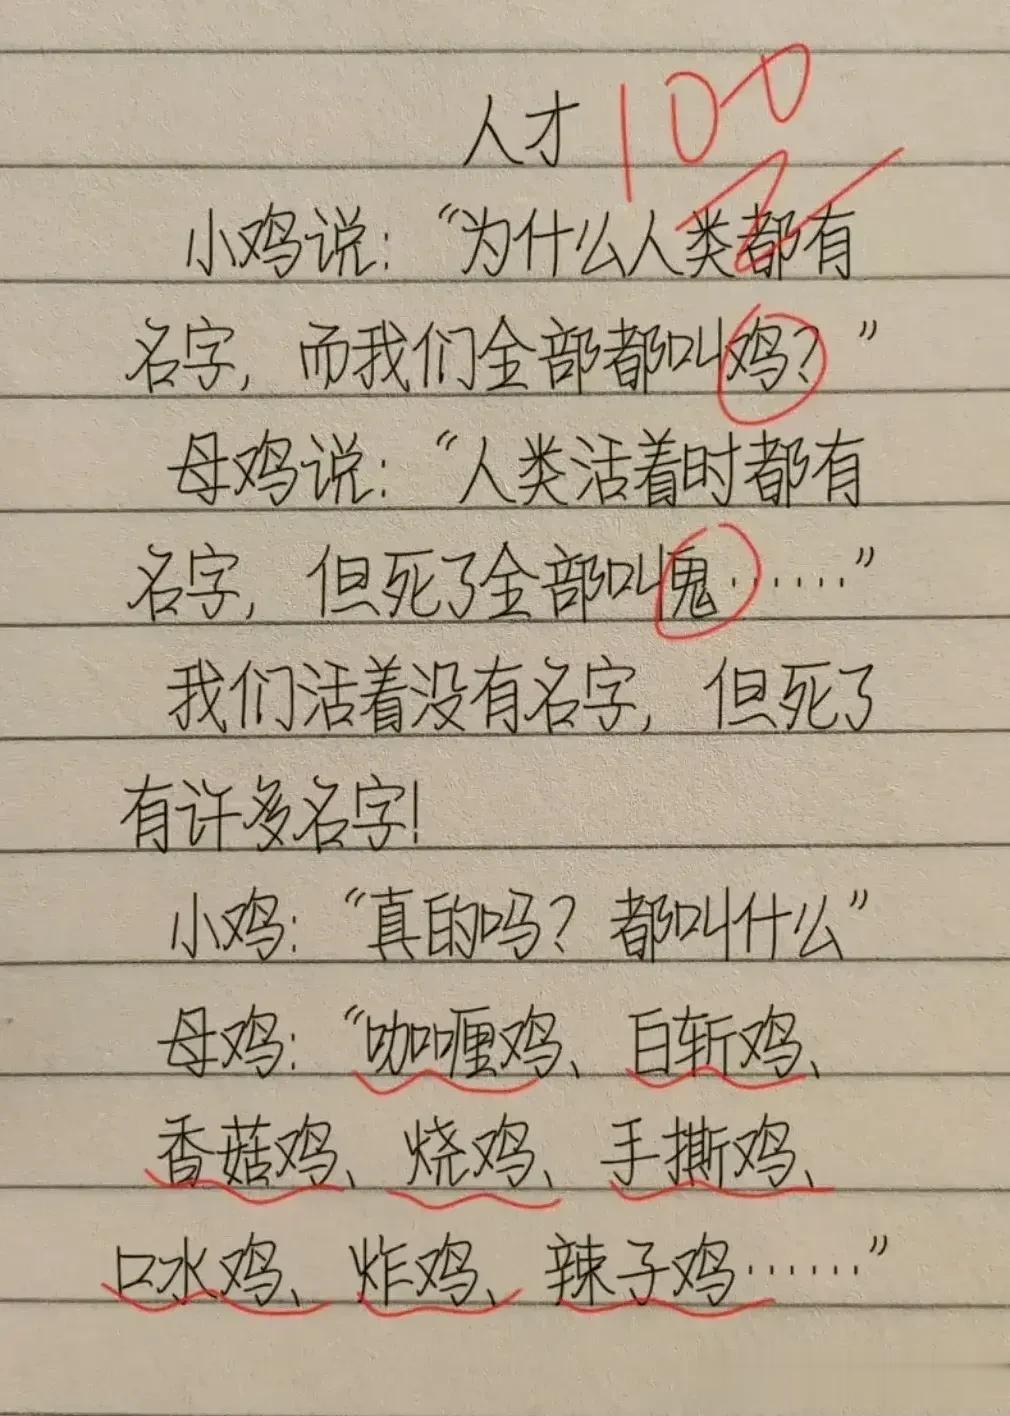 人才 100
小鸡说：“为什么人类都有
名字，而我们全部都叫鸡？”
母鸡说：“人类活着时都有
名字，但死了全部叫鬼……”
我们活着没有名字，但死了
有许多名字！
小鸡：“真的吗？都叫什么”
母鸡：“咖喱鸡、白斩鸡、
香菇鸡、烧鸡、手撕鸡、
口水鸡、炸鸡、辣子鸡……”